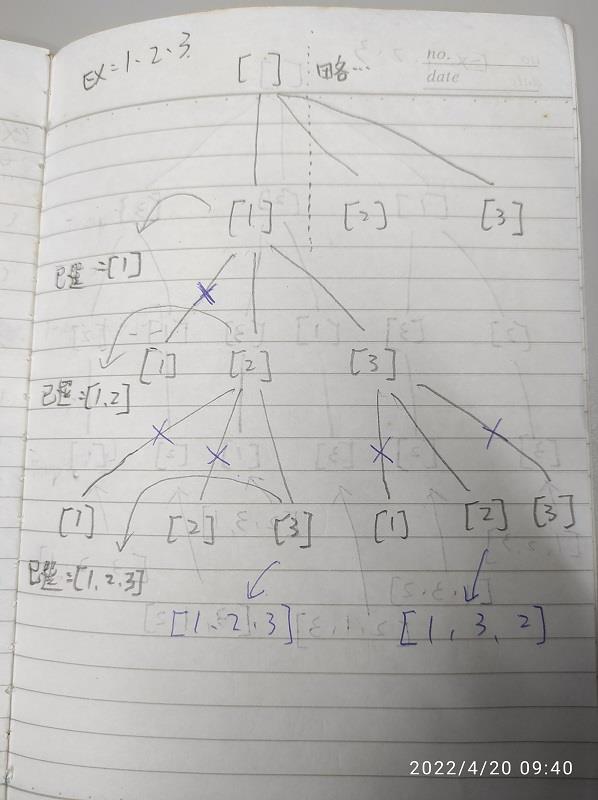 EX=1、2、3
[ ]
略…
no.
date
[1] [2] [3]
已選=[1]
[1] [2] [3]
已選=[1,2]
[1] [2] [3] [1] [2] [3]
已選=[1,2,3]
[1、2、3] [1,3,2]
2022/4/20 09:40